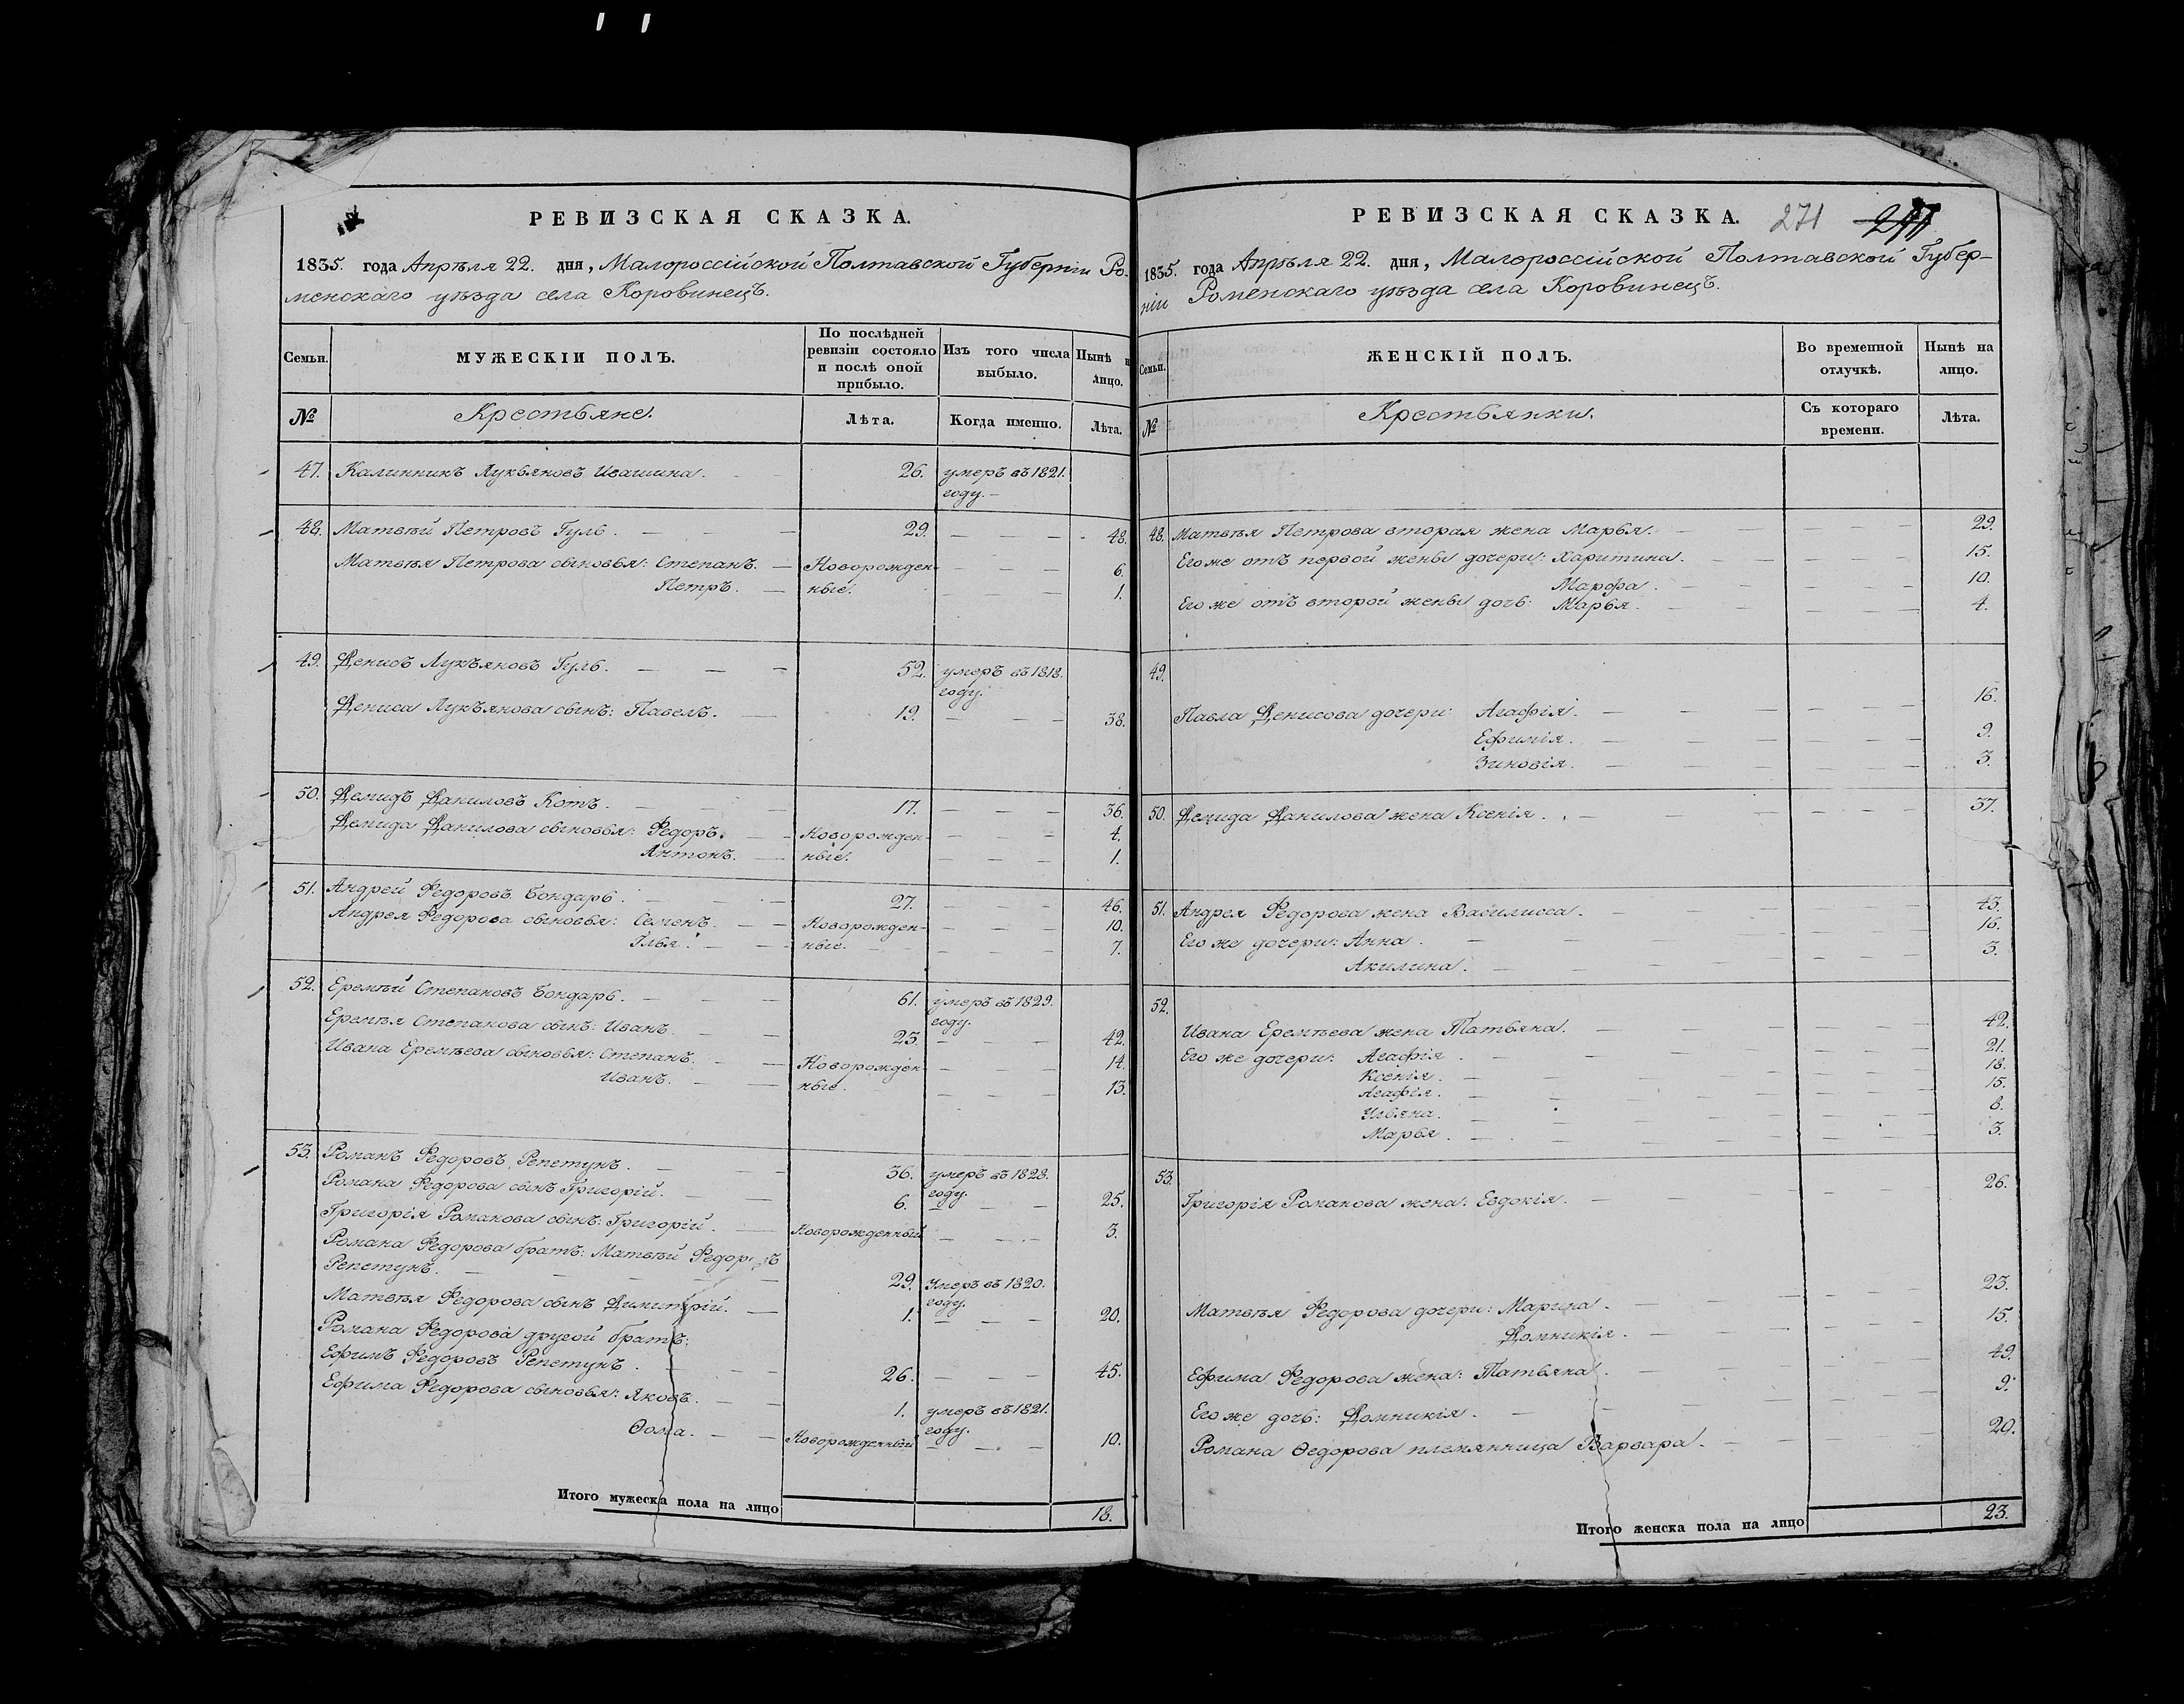 РЕВИЗСКАЯ СКАЗКА.
1835. года Апрѣля 22. дня, Малороссійской Полтавской Губерніи Ро-
менскаго уѣзда села Коровинецъ.
Семьи. МУЖЕСКІИ ПОЛЪ. По послѣдней ревизіи состояло и послѣ оной прибыло. Изъ того числа выбыло. Нынѣ н лицо.
№ Крестьяне. Лѣта. Когда именно. Лѣта.
47. Калинникъ Лукьяновъ Ивашина. 26. умеръ въ 1821.
году.
48. Матвѣй Петровъ Гуль. 29. 48.
Матвѣя Петрова сыновья: Степанъ. Новорожден- 6.
Петръ. ные. 1.
49. Денисъ Лукъяновъ Гуль. 52. умеръ въ 1818.
году.
Дениса Лукъянова сынъ: Павелъ. 19. 38.
50. Демидъ Даниловъ Котъ. 17. 36.
Демида Данилова сыновья: Федоръ. Новорожден- 4.
Антонъ. ные. 1.
51. Андрей Федоровъ Бондарь. 27. 46.
Андрея Федорова сыновья: Семенъ. Новорожден- 10.
Илья. ные. 7.
52. Еремѣй Степановъ Бондарь. 61. умеръ въ 1829.
году.
Еремѣя Степанова сынъ: Иванъ. 23. 42.
Ивана Еремѣева сыновья: Степанъ. Новорожден- 14.
Иванъ. ные. 13.
53. Романъ Федоровъ Репетунъ. 36. умеръ въ 1828.
году.
Романа Федорова сынъ Григорій. 6. 25.
Григорія Романова сынъ: Григорій. Новорожденный 3.
Романа Федорова братъ: Матвѣй Федоровъ
Репетунъ. 29. Умеръ въ 1820.
году.
Матвѣя Федорова сынъ Димитрій. 1. 20.
Романа Федорова другой братъ:
Ефимъ Федоровъ Репетунъ. 26. 45.
Ефима Федорова сыновья: Яковъ. 1. умеръ въ 1821.
году.
Ѳома. Новорожденный 10.
Итого мужеска пола на лицо 18.
РЕВИЗСКАЯ СКАЗКА. 271
1835. года Апрѣля 22. дня, Малороссійской Полтавской Губер-
ніи Роменскаго уѣзда села Коровинецъ.
Семьи. ЖЕНСКІЙ ПОЛЪ. Во временной отлучкѣ. Нынѣ на лицо.
№ Крестьянки. Съ котораго времени. Лѣта.
48. Матвѣя Петрова вторая жена Марья. 29.
Его же отъ первой жены дочери: Харитина. 15.
Марфа. 10.
Его же отъ второй жены дочь: Марья. 4.
49.
Павла Денисова дочери: Агафія. 16.
Ефимія. 9.
Зиновія. 3.
50. Демида Данилова жена Ксенія. 37.
51. Андрея Федорова жена Василисса. 43.
Его же дочери: Анна. 16.
Акилина. 3.
52.
Ивана Еремѣева жена Татьяна. 42.
Его же дочери: Агафія. 21.
Ксенія. 18.
Агафія. 15.
Ульяна. 8.
Марья. 3.
53.
Григорія Романова жена: Евдокія. 26.
Матвѣя Федорова дочери: Марина. 23.
Домникія. 15.
Ефима Федорова жена: Татьяна. 49.
Его же дочь: Домникія. 9.
Романа Ѳедорова племянница Варвара. 20.
Итого женска пола на лицо 23.